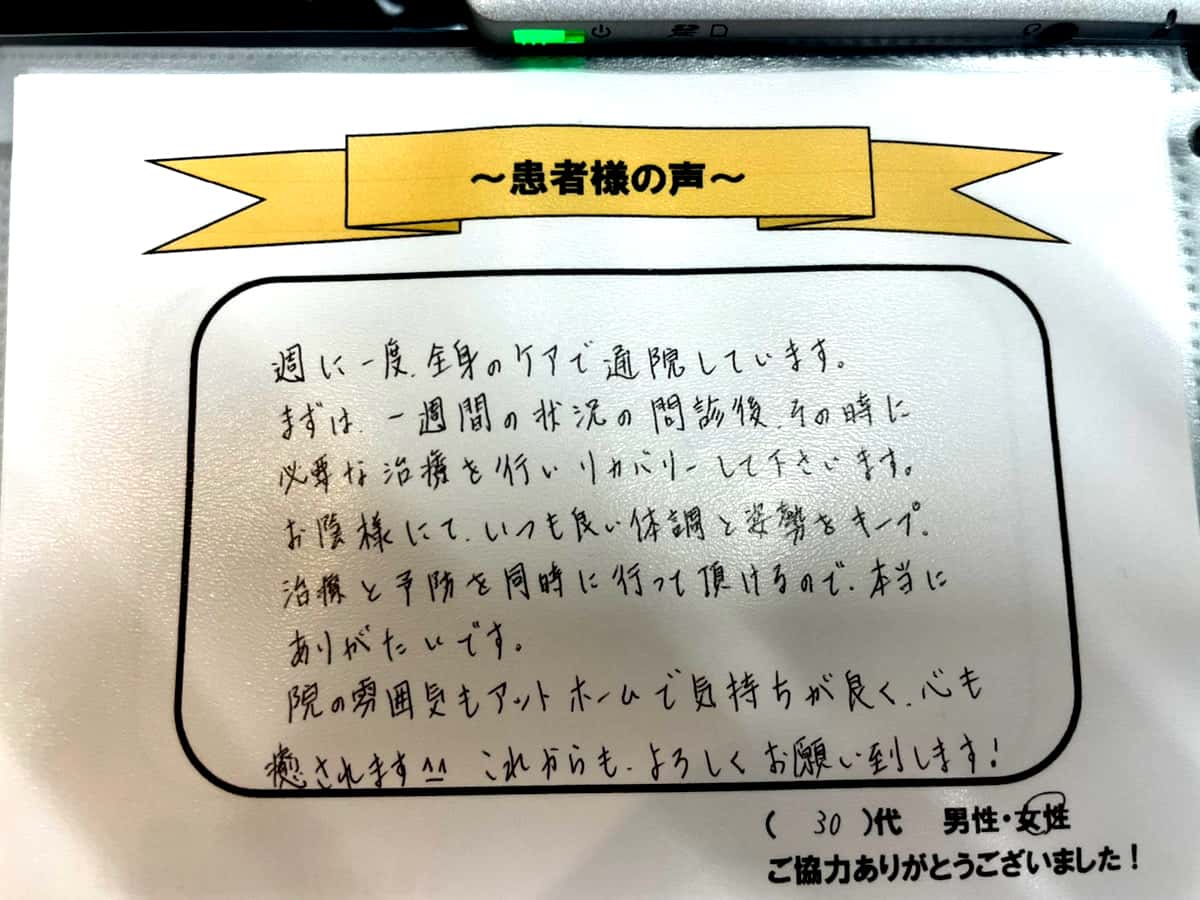 ～患者様の声～
週に一度、全身のケアで通院しています。
まずは、一週間の状況の問診後、その時に
必要な治療を行いリカバリーして下さいます。
お陰様にて、いつも良い体調と姿勢をキープ。
治療と予防を同時に行って頂けるので、本当に
ありがたいです。
院の雰囲気もアットホームで気持ちが良く、心も
癒されます^^ これからも、よろしくお願い到します!
( 30 )代 男性・女性
ご協力ありがとうございました！